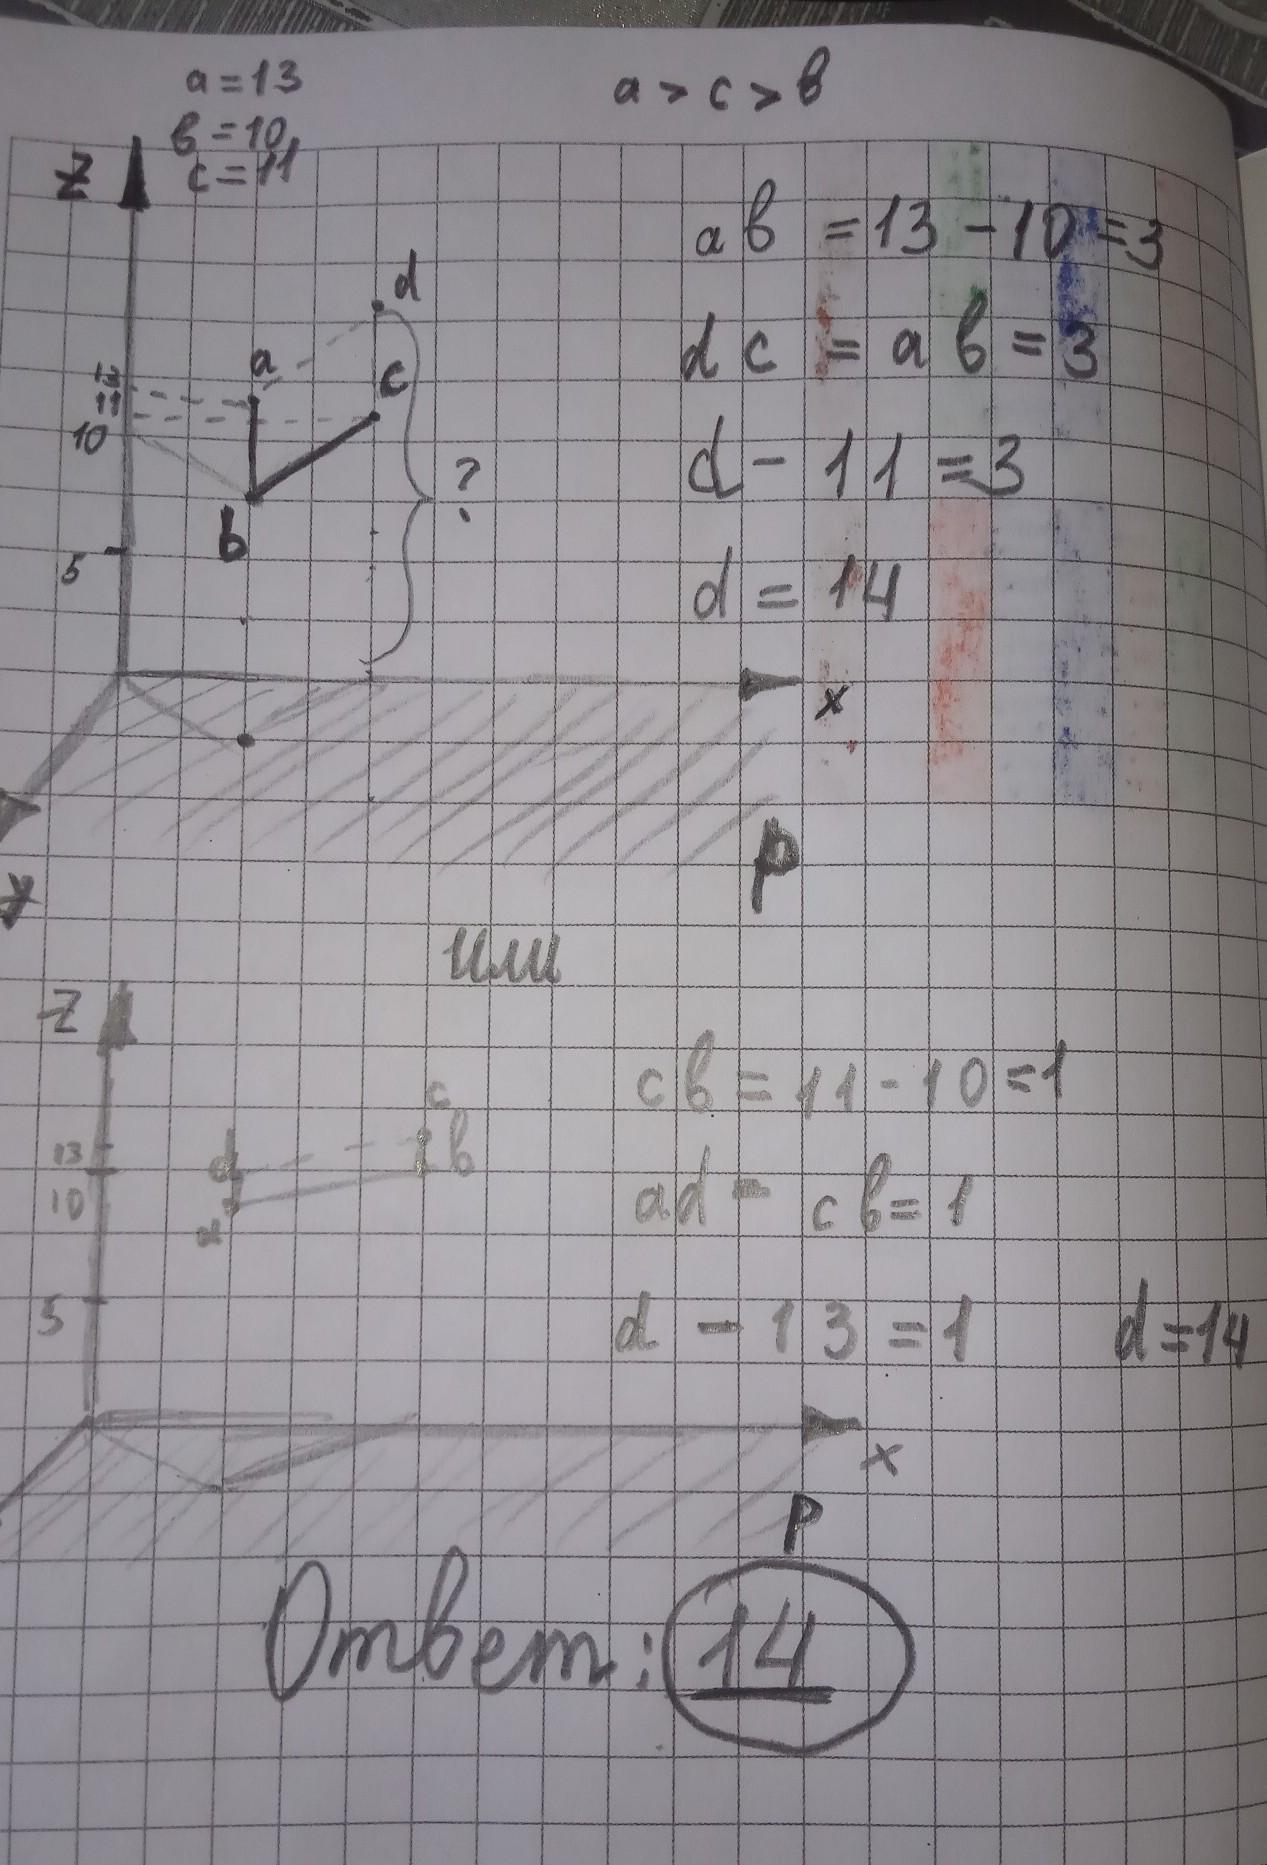 a = 13
a > c > в
в = 10
c = 11
z
d
a
c
11
10
b
?
5
x
y
p
aв = 13 - 10 = 3
dc = aв = 3
d - 11 = 3
d = 14
или
z
c
13
d
в
10
5
x
p
cв = 11 - 10 = 1
ad = cв = 1
d - 13 = 1 d = 14
Ответ: 14